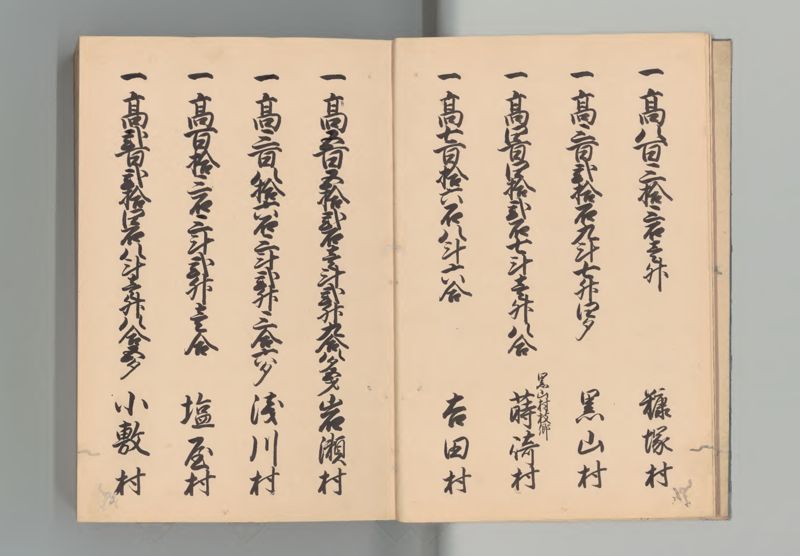 一 高八百三拾三石壱升 糠塚村
一 高三百弐拾石九斗七升四夕 黒山村
一 高四百四拾弐石七斗壱升八合 黒山村枝郷 蒋渟村
一 高七百拾六石八斗六合 吉田村
一 高五百五拾弐石壱斗弐升九合八夕 岩瀬村
一 高三百八拾六石三斗弐升三合六夕 浅川村
一 高百拾三石三斗弐升壱合 塩屋村
一 高弐百弐拾四石八斗壱升八合五夕 小敷村